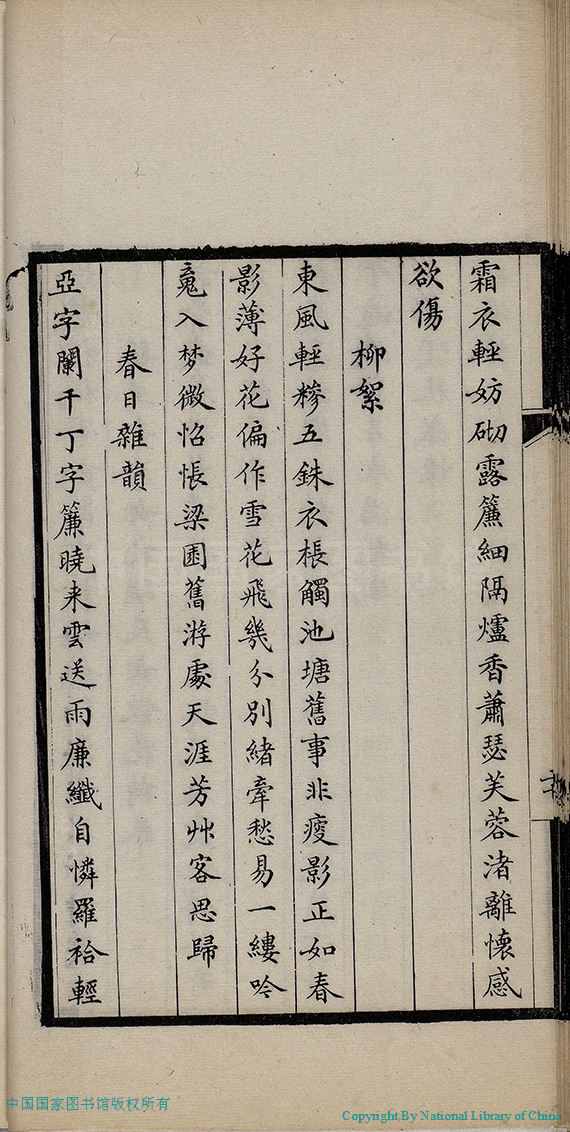 霜衣輕妨砌露簾細隔爐香蕭瑟芙蓉渚離懷感
欲傷
柳絮
東風輕糝五銖衣棖觸池塘舊事非瘦影正如春
影薄好花偏作雪花飛幾分別緒牽愁易一縷吟
䰟入梦微怊悵梁園舊游處天涯芳艸客思歸
春日雜韻
亞字闌干丁字簾曉来雲送雨廉纖自憐羅袷輕
中国国家图书馆版权所有
Copyright By National Library of China